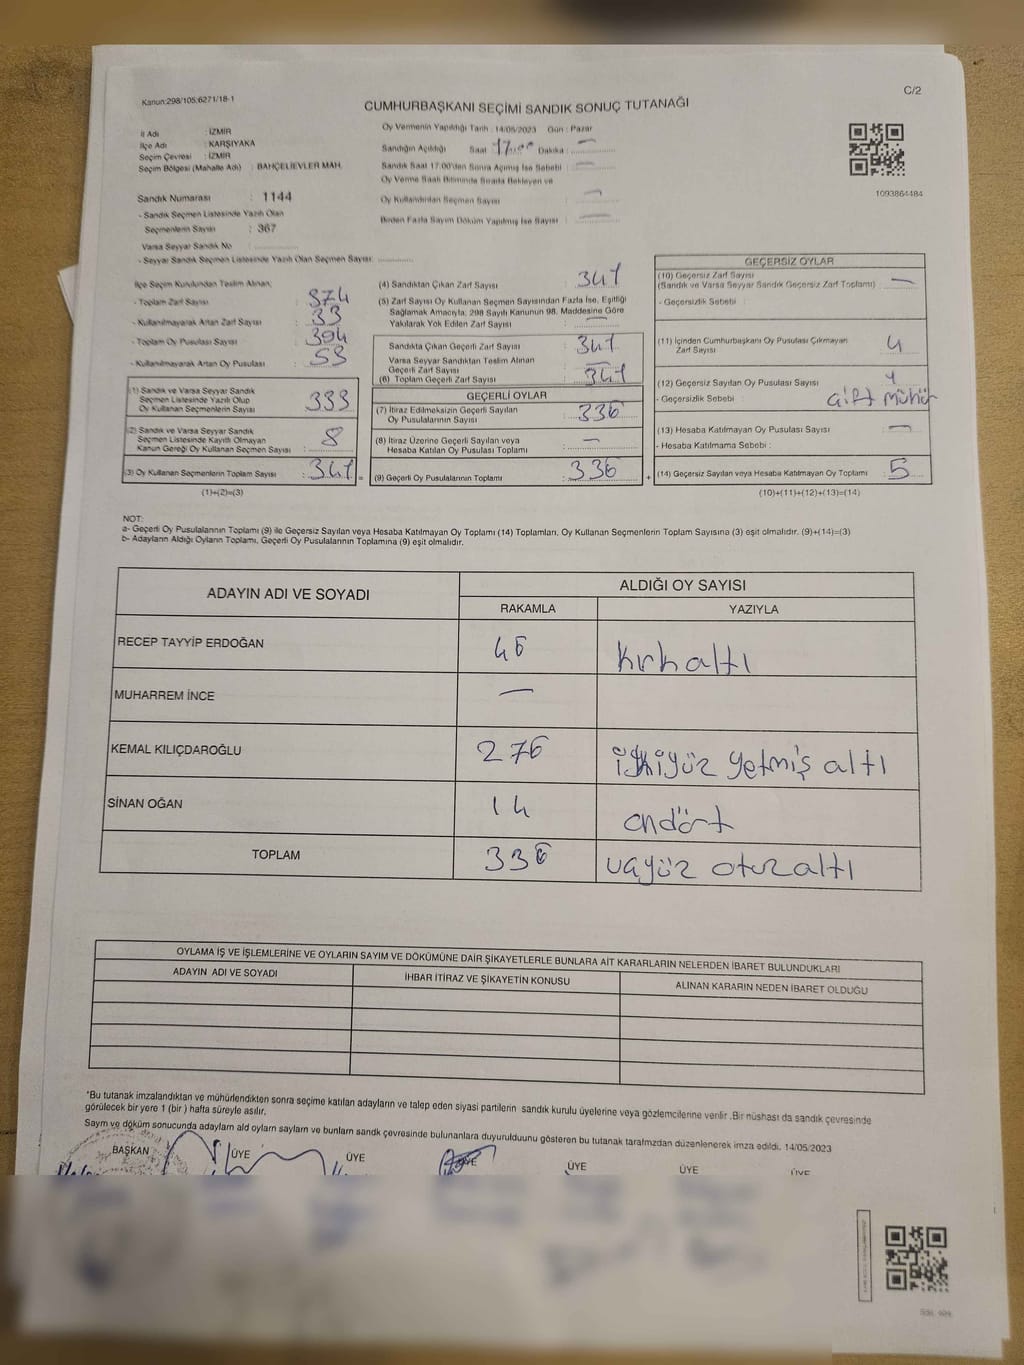 Kanun:298/105;6271/18-1
C/2
CUMHURBAŞKANI SEÇİMİ SANDIK SONUÇ TUTANAĞI
İl Adı : İZMİR
İlçe Adı : KARŞIYAKA
Seçim Çevresi : İZMİR
Seçim Bölgesi (Mahalle Adı) : BAHÇELİEVLER MAH.
Sandık Numarası : 1144
- Sandık Seçmen Listesinde Yazılı Olan
Seçmenlerin Sayısı : 367
Varsa Seyyar Sandık No :
- Seyyar Sandık Seçmen Listesinde Yazılı Olan Seçmen Sayısı:
Oy Vermenin Yapıldığı Tarih : 14/05/2023 Gün : Pazar
Sandığın Açıldığı Saat : 17.00 Dakika : —
Sandık Saat 17.00'den Sonra Açılmış İse Sebebi : —
Oy Verme Saati Bitiminde Sırada Bekleyen ve
Oy Kullandırılan Seçmen Sayısı : —
Birden Fazla Sayım Döküm Yapılmış İse Sayısı : —
1093864484
İlçe Seçim Kurulundan Teslim Alınan;
- Toplam Zarf Sayısı : 374
- Kullanılmayarak Artan Zarf Sayısı : 33
- Toplam Oy Pusulası Sayısı : 394
- Kullanılmayarak Artan Oy Pusulası : 53
(1) Sandık ve Varsa Seyyar Sandık
Seçmen Listesinde Yazılı Olup
Oy Kullanan Seçmenlerin Sayısı : 333
(2) Sandık ve Varsa Seyyar Sandık
Seçmen Listesinde Kayıtlı Olmayan
Kanun Gereği Oy Kullanan Seçmen Sayısı : 8
(3) Oy Kullanan Seçmenlerin Toplam Sayısı : 341 =
(1)+(2)=(3)
(4) Sandıktan Çıkan Zarf Sayısı : 341
(5) Zarf Sayısı Oy Kullanan Seçmen Sayısından Fazla İse, Eşitliği
Sağlamak Amacıyla, 298 Sayılı Kanunun 98. Maddesine Göre
Yakılarak Yok Edilen Zarf Sayısı : —
Sandıkta Çıkan Geçerli Zarf Sayısı : 341
Varsa Seyyar Sandıktan Teslim Alınan
Geçerli Zarf Sayısı : —
(6) Toplam Geçerli Zarf Sayısı : 341
GEÇERLİ OYLAR
(7) İtiraz Edilmeksizin Geçerli Sayılan
Oy Pusulalarının Sayısı : 336
(8) İtiraz Üzerine Geçerli Sayılan veya
Hesaba Katılan Oy Pusulası Toplamı : —
(9) Geçerli Oy Pusulalarının Toplamı : 336 +
GEÇERSİZ OYLAR
(10) Geçersiz Zarf Sayısı
(Sandık ve Varsa Seyyar Sandık Geçersiz Zarf Toplamı) : —
- Geçersizlik Sebebi :
(11) İçinden Cumhurbaşkanı Oy Pusulası Çıkmayan
Zarf Sayısı : 4
(12) Geçersiz Sayılan Oy Pusulası Sayısı :
- Geçersizlik Sebebi : Çift mühür
(13) Hesaba Katılmayan Oy Pusulası Sayısı : —
- Hesaba Katılmama Sebebi :
(14) Geçersiz Sayılan veya Hesaba Katılmayan Oy Toplamı : 5
(10)+(11)+(12)+(13)=(14)
NOT:
a- Geçerli Oy Pusulalarının Toplamı (9) ile Geçersiz Sayılan veya Hesaba Katılmayan Oy Toplamı (14) Toplamları, Oy Kullanan Seçmenlerin Toplam Sayısına (3) eşit olmalıdır. (9)+(14)=(3)
b- Adayların Aldığı Oyların Toplamı, Geçerli Oy Pusulalarının Toplamına (9) eşit olmalıdır.
ADAYIN ADI VE SOYADI
ALDIĞI OY SAYISI
RAKAMLA YAZIYLA
RECEP TAYYİP ERDOĞAN 46 kırkaltı
MUHARREM İNCE —
KEMAL KILIÇDAROĞLU 276 ikiyüz yetmiş altı
SİNAN OĞAN 14 ondört
TOPLAM 336 üçyüz otuzaltı
OYLAMA İŞ VE İŞLEMLERİNE VE OYLARIN SAYIM VE DÖKÜMÜNE DAİR ŞİKAYETLERLE BUNLARA AİT KARARLARIN NELERDEN İBARET BULUNDUKLARI
ADAYIN ADI VE SOYADI İHBAR İTİRAZ VE ŞİKAYETİN KONUSU ALINAN KARARIN NEDEN İBARET OLDUĞU
*Bu tutanak imzalandıktan ve mühürlendikten sonra seçime katılan adayların ve talep eden siyasi partilerin sandık kurulu üyelerine veya gözlemcilerine verilir .Bir nüshası da sandık çevresinde
görülecek bir yere 1 (bir ) hafta süreyle asılır.
Sayım ve döküm sonucunda adayların ald oyların sayları ve bunların sandk çevresinde bulunanlara duyurulduunu gösteren bu tutanak tarafmzdan düzenlenerek imza edildi. 14/05/2023
BAŞKAN ÜYE ÜYE ÜYE ÜYE ÜYE ÜYE